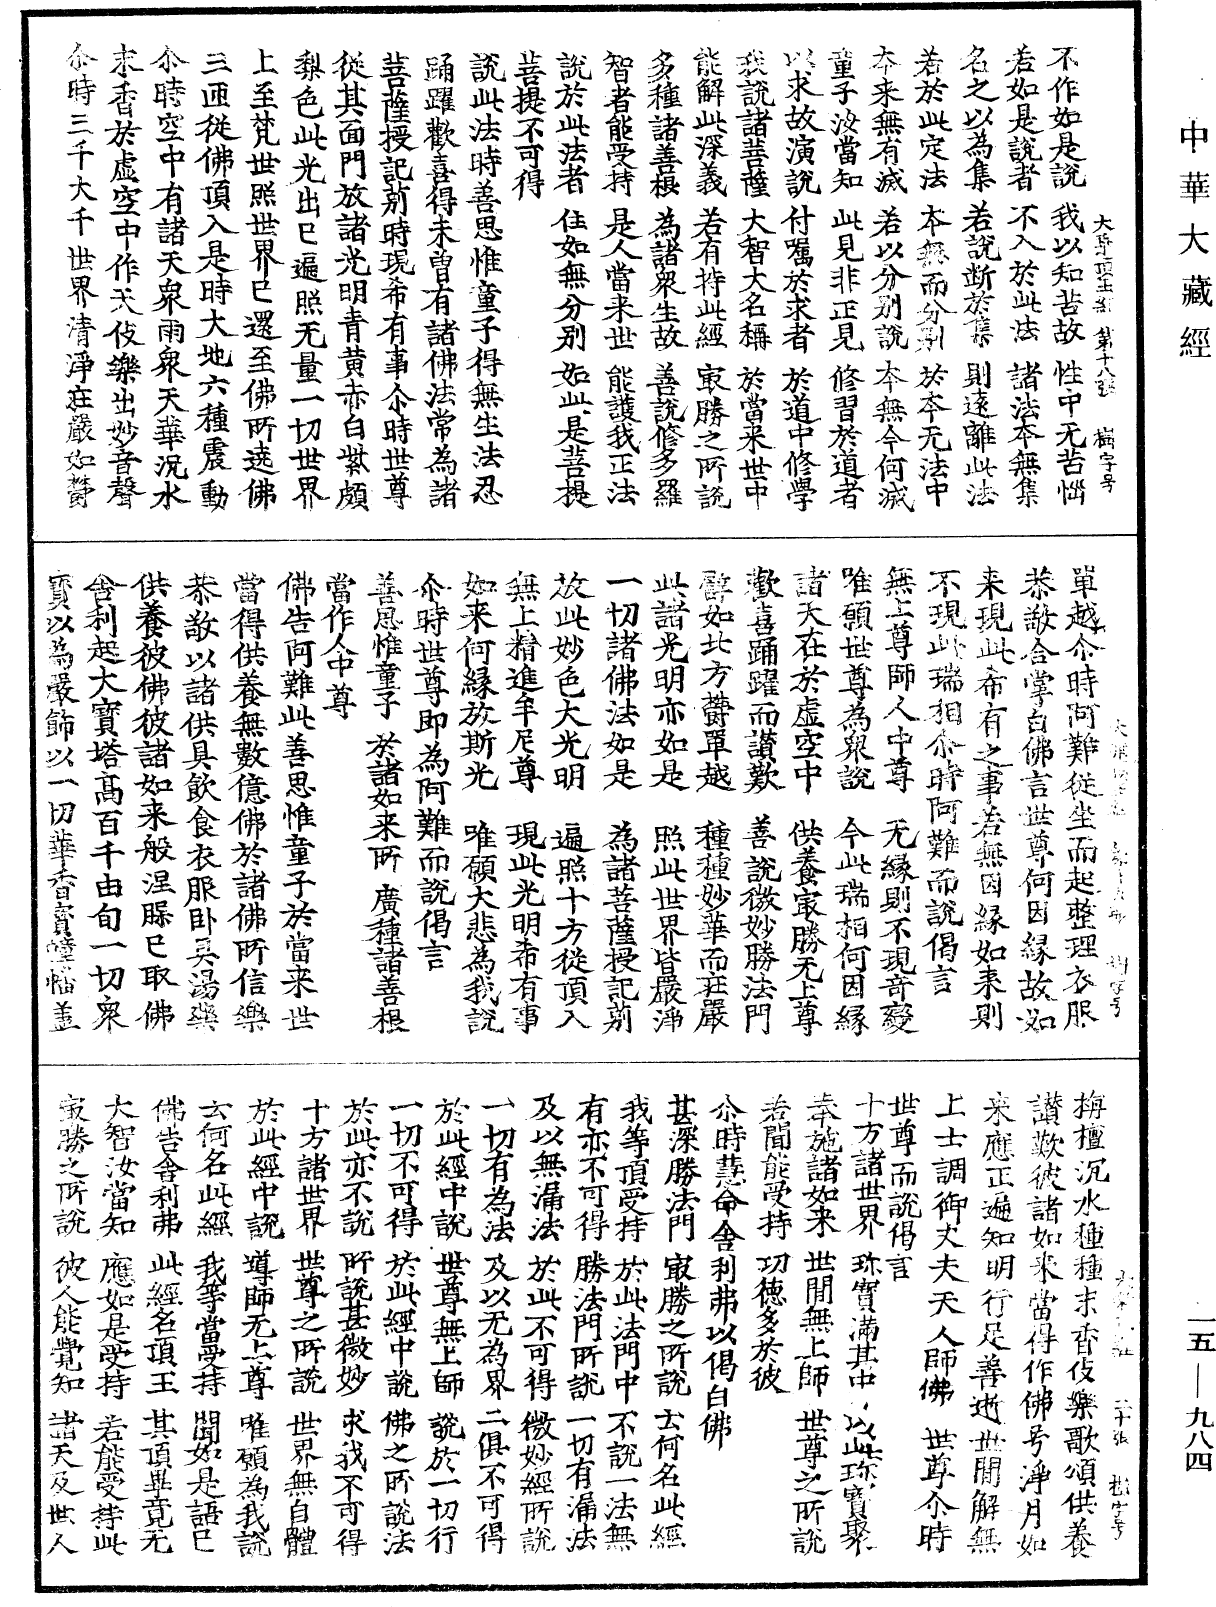 中華大藏經
不作如是說　我以知苦故　性中无苦惱
若如是說者　不入於此法　諸法本無集
名之以為集　若說斷於集　則遠離此法
若於此定法　本無而分別　於本无法中
本来無有滅　若以分別說　本無今何滅
童子汝當知　此見非正見　修習於道者
以求故演說　付囑於求者　於道中修學
我說諸菩薩　大智大名稱　於當来世中
能解此深義　若有持此經　㝡勝之所說
多種諸善根　為諸衆生故　善說修多羅
智者能受持　是人當来世　能護我正法
說於此法者　住如無分別　如此是菩提
菩提不可得
說此法時善思惟童子得無生法忍
踊躍歡喜得未曾有諸佛法常為諸
菩薩授記莂時現希有事尒時世尊
從其面門放諸光明青黄赤白紫頗
梨色此光出已遍照无量一切世界
上至梵世照世界已還至佛所遶佛
三匝從佛頂入是時大地六種震動
尒時空中有諸天衆雨衆天華沉水
末香於虛空中作天伎樂出妙音聲
尒時三千大千世界清淨莊嚴如欝
單越尒時阿難從坐而起整理衣服
恭敬合掌白佛言世尊何因緣故如
来現此希有之事若無因緣如来則
不現此瑞相尒時阿難而說偈言
無上尊師人中尊　无緣則不現奇變
唯願世尊為衆說　今此瑞相何因緣
諸天在於虛空中　供養㝡勝无上尊
歡喜踊躍而讃歎　善說微妙勝法門
譬如北方欝單越　種種妙華而莊嚴
此諸光明亦如是　照此世界皆嚴淨
一切諸佛法如是　為諸菩薩授記莂
故此妙色大光明　遍照十方從頂入
無上精進牟尼尊　現此光明希有事
如来何緣放斯光　唯願大悲為我說
尒時世尊即為阿難而說偈言
善思惟童子　於諸如来所　廣種諸善根
當作人中尊
佛告阿難此善思惟童子於當来世
當得供養無數億佛於諸佛所信樂
恭敬以諸供具飲食衣服卧具湯藥
供養彼佛彼諸如来般涅槃已取佛
舍利起大寶塔高百千由旬一切衆
寶以為嚴飾以一切華香寶幢幡盖
栴檀沉水種種末香伎樂歌頌供養
讃歎彼諸如来當得作佛号淨月如
来應正遍知明行足善逝世間解無
上士調御丈夫天人師佛　世尊尒時
世尊而說偈言
十方諸世界　珎寶滿其中　以此珎寶聚
奉施諸如来　世間無上師　世尊之所說
若聞能受持　功德多於彼
尒時慧命舍利弗以偈白佛
甚深勝法門　㝡勝之所說　云何名此經
我等頂受持　於此法門中　不說一法無
有亦不可得　勝法門所說　一切有漏法
及以無漏法　於此不可得　微妙經所說
一切有為法　及以无為界　二俱不可得
於此經中說　世尊無上師　說於一切行
一切不可得　於此經中說　佛之所說法
於此亦不說　所說甚微妙　求我不可得
十方諸世界　世尊之所說　世界無自體
於此經中說　導師无上尊　唯願為我說
云何名此經　我等當受持　聞如是語已
佛告舍利弗　此經名頂王　其頂畢竟无
大智汝當知　應如是受持　若能受持此
㝡勝之所說　彼人能覺知　諸天及世人
一五—九八四